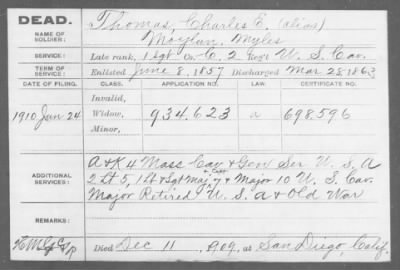 DEAD. Thomas, Charles E. (alias)
NAME OF SOLDIER: Moylan, Myles
SERVICE: Late rank, 1 Sgt Co. C. 2 Reg't U. S. Cav.
TERM OF SERVICE: Enlisted June 8, 1857 Discharged Mar 28, 1863
DATE OF FILING. CLASS. APPLICATION NO. LAW. CERTIFICATE NO.
Invalid,
1910 Jan 24 Widow, 934.623 a 698.596
Minor,
A & K 4 Mass Cav & Gen Ser U. S. A
ADDITIONAL SERVICES: 2 Lt 5, 1 Lt & Sgt Maj & Capt 7 & Major 10 U. S. Cav.
Major Retired U. S. A & Old War
REMARKS:
Died Dec 11, 1909, at San Diego, Calif.